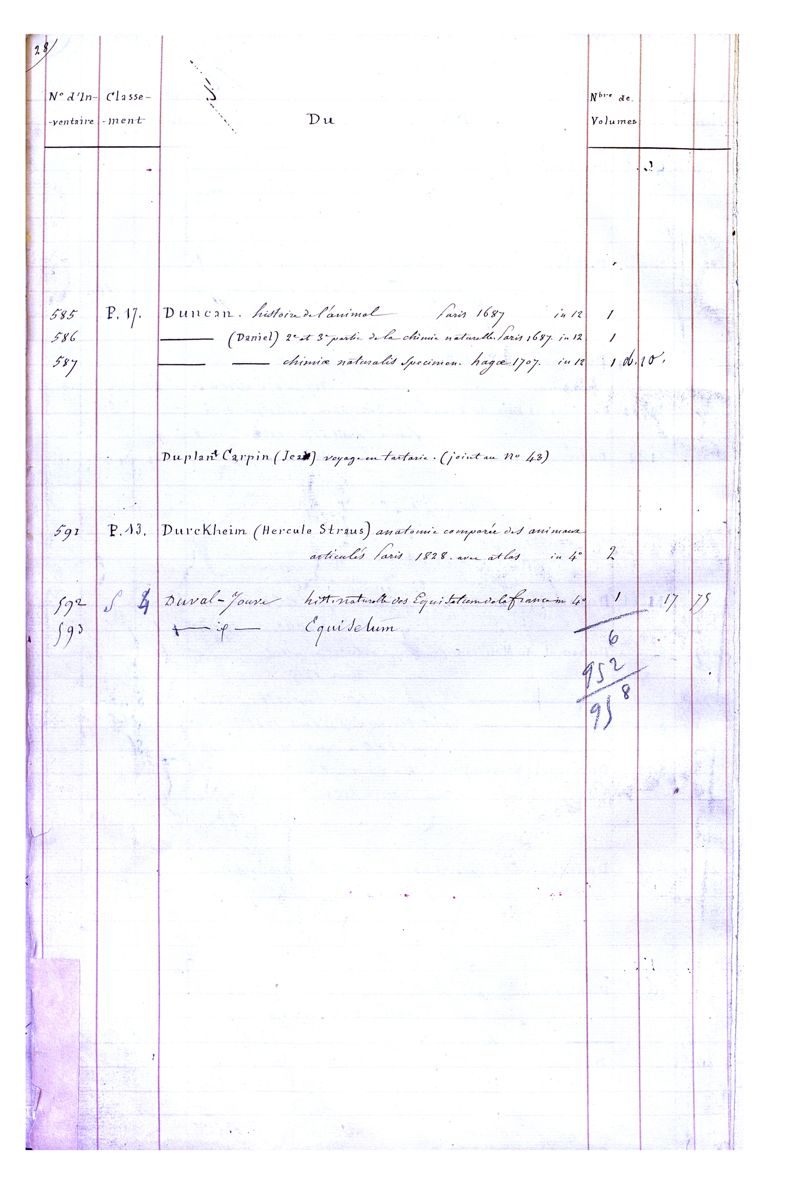 28
N° d'In- Classe- Nbre de
-ventaire -ment Du Volumes
585 P. 17. Duncan. histoire de l'animal Paris 1687 in 12 1
586 (Daniel) 2e et 3e partie de la chimie naturelle. Paris 1687. in 12 1
587 chimiæ naturalis specimen. hagæ 1707. in 12 1 d. 10.
Duplant Carpin (Jean) voyage en tartarie. (joint au N° 43)
591 P. 13. Durckheim (Hercule Straus) anatomie comparée des animaux
articulés Paris 1828. avec atlas in 4° 2
592 S 4 Duval-Jouve hist. naturelle des Equisetum de la france in 4° 1 17 75
593 Equisetum
6
952
958